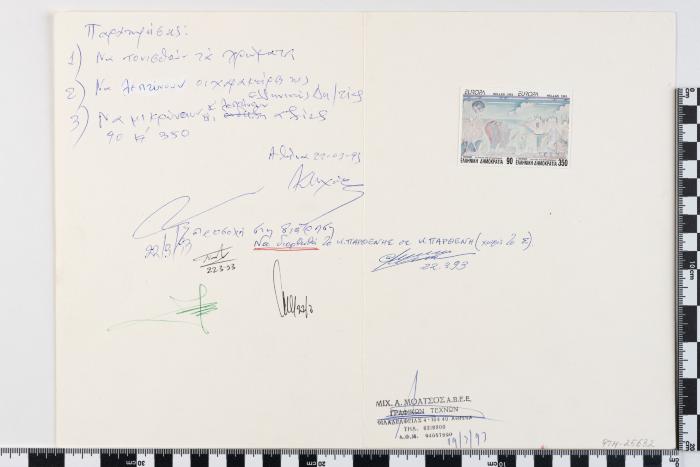 Παρατηρήσεις:
1) Να τονισθούν τα χρώματα
2) Να λεπτύνουν οι χαρακτήρες της
Ελληνικής Δη/τίας
3) Να μικρύνουν & λεπτύνουν οι αξίες
90 & 350
Αθήνα 22-03-93
Προσοχή στη διάτρηση
22/3/93
Να διορθωθεί το Κ.ΠΑΡΘΕΝΗΣ σε Κ.ΠΑΡΘΕΝΗ (χωρίς το Σ)
22.3.93
22.3.93
22/3
EUROPA HELLAS 1993 EUROPA HELLAS 1993
ΕΛΛΗΝΙΚΗ ΔΗΜΟΚΡΑΤΙΑ 90 ΕΛΛΗΝΙΚΗ ΔΗΜΟΚΡΑΤΙΑ 350
ΜΙΧ. Α. ΜΟΑΤΣΟΣ Α.Β.Ε.Ε.
ΓΡΑΦΙΚΩΝ ΤΕΧΝΩΝ
ΦΙΛΑΔΕΛΦΕΙΑΣ 4 - 104 40 ΑΘΗΝΑ
ΤΗΛ.
Α.Φ.Μ. 94057990
19/3/93